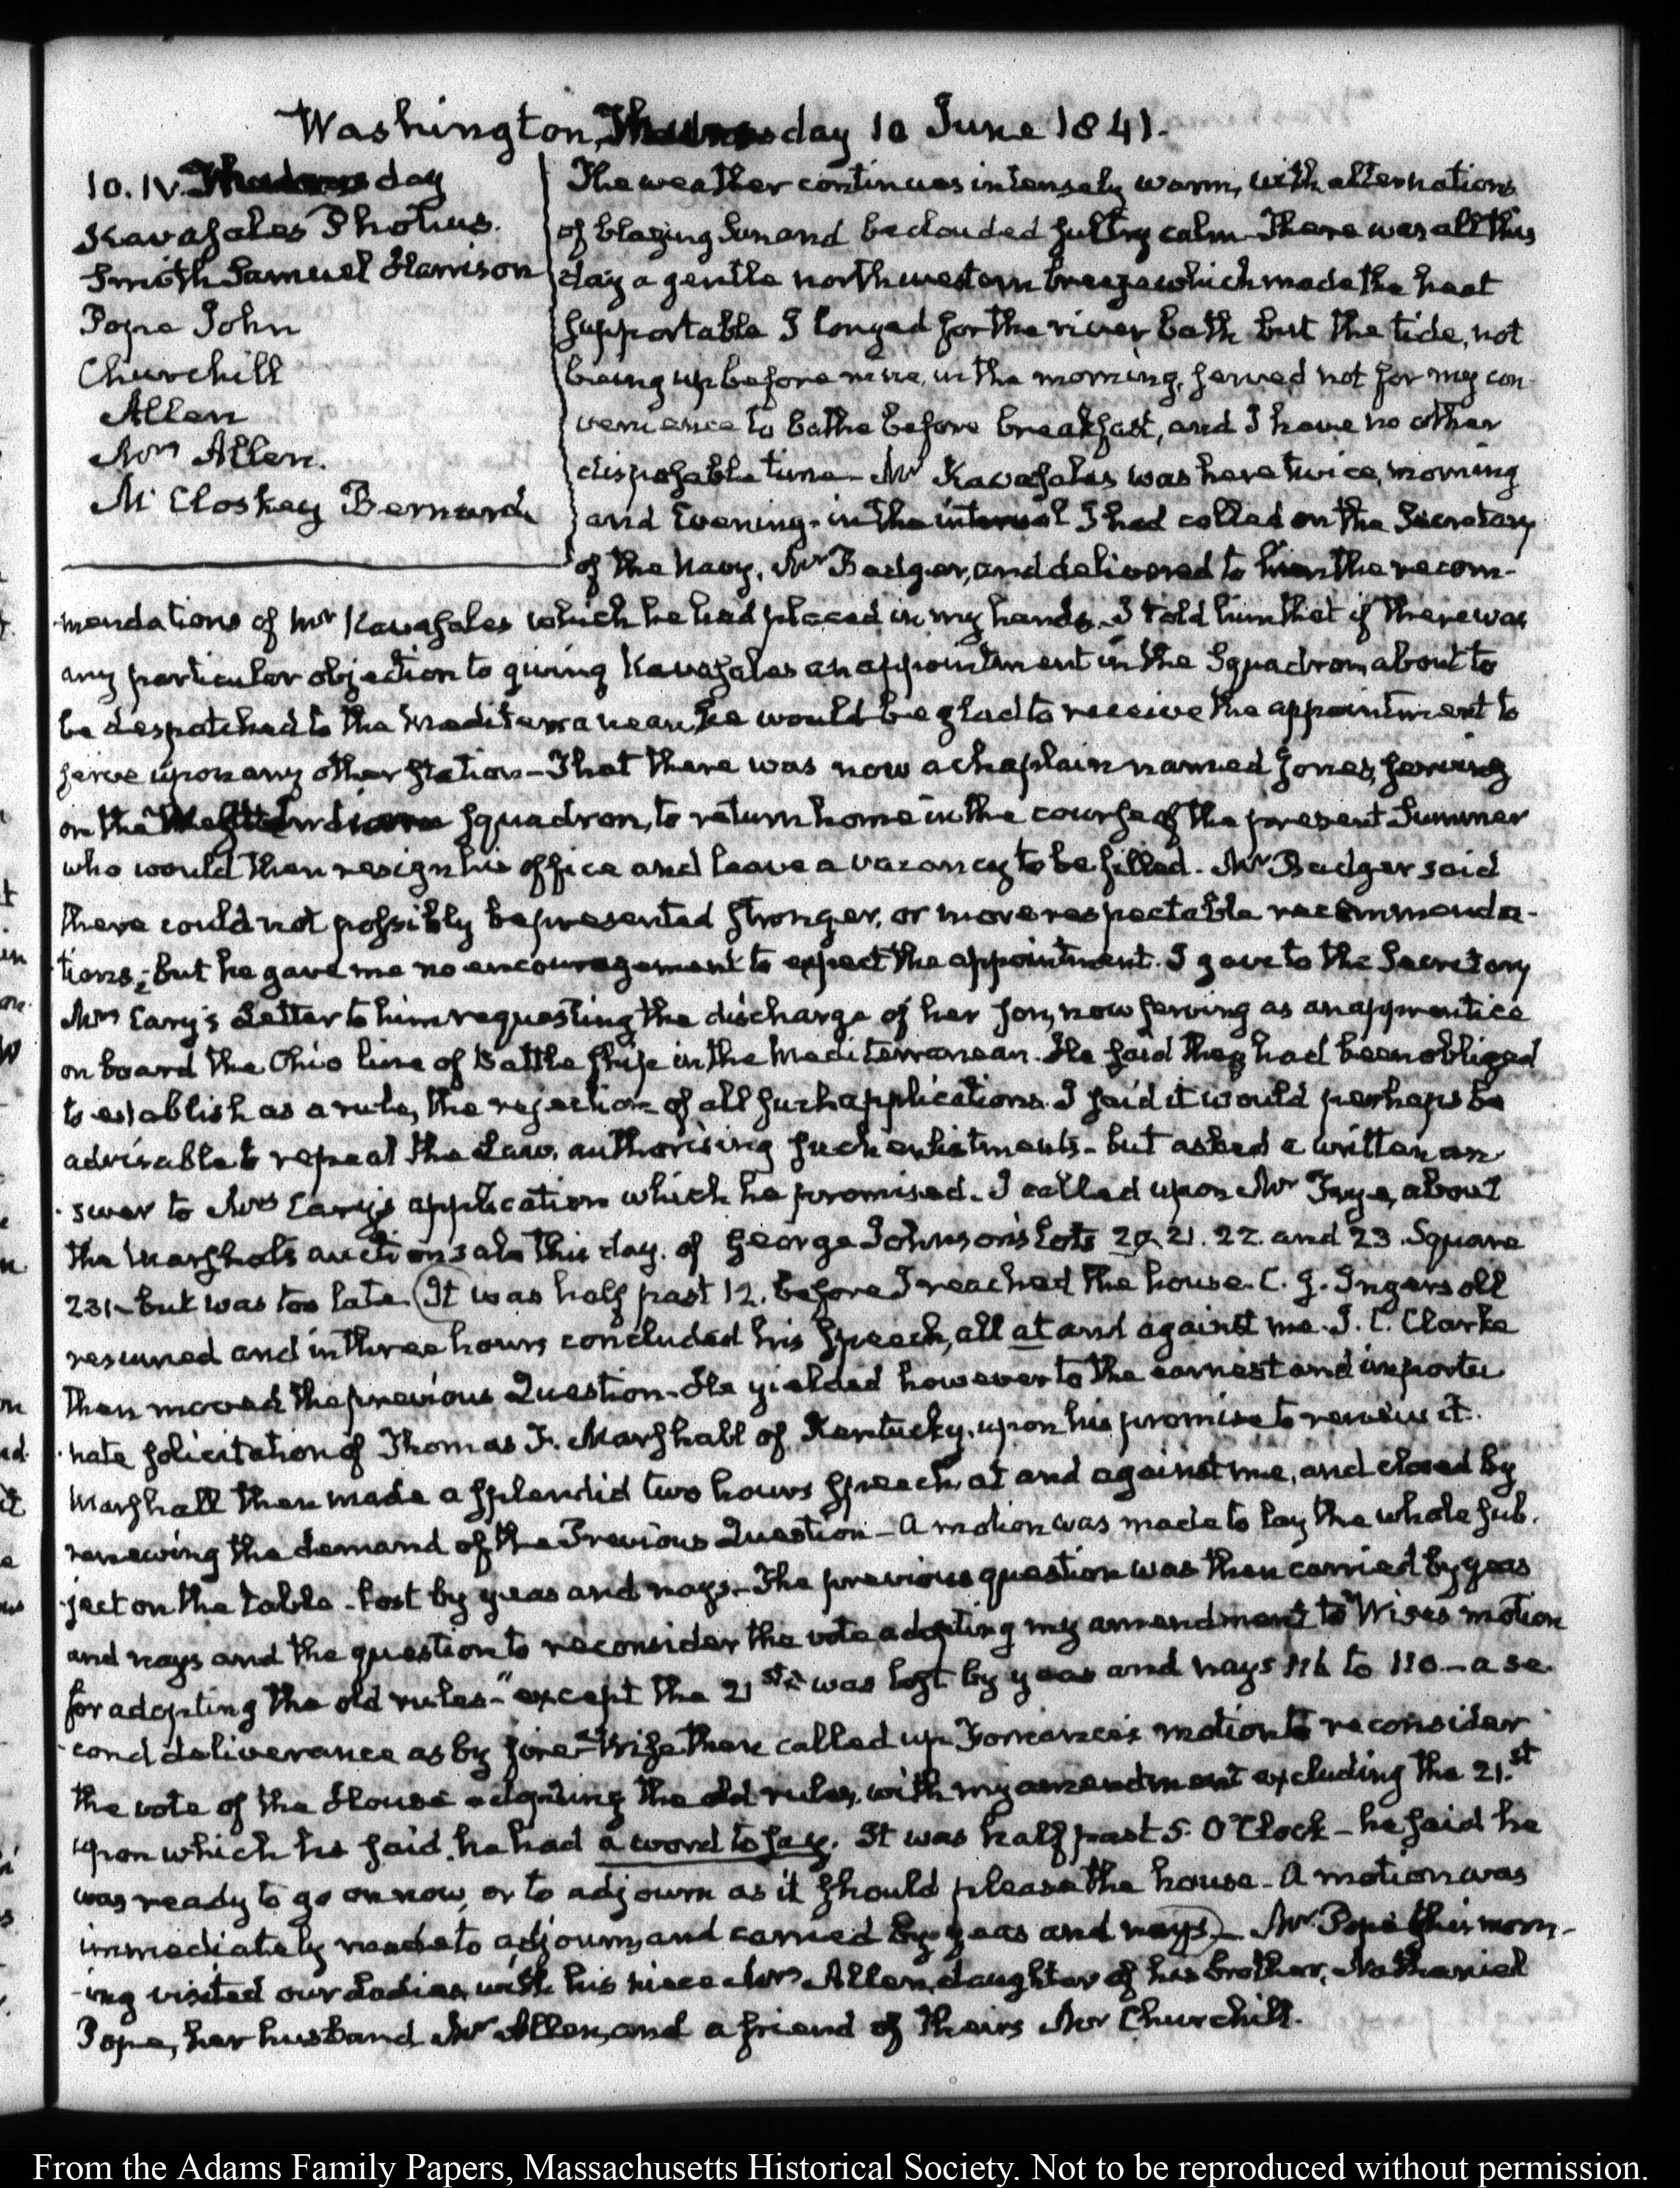 Washington, Thursday 10 June 1841.
10. IV. Thursday
Kavasales Photius.
Smith Samuel Harrison
Pope John
Churchill
Allen
Mrs Allen.
McCloskey Bernard
The weather continues intensely warm, with alternations
of blazing Sun and beclouded sultry calm. There was all this
day a gentle northwestern breeze which made the heat
supportable I longed for the river bath but the tide, not
being up before nine, in the morning, served not for my con-
venience to bathe before breakfast, and I have no other
disposable time — Mr Kavasales was here twice, morning
and Evening - in the interval I had called on the Secretary
of the Navy, Mr Badger, and delivered to him the recom-
mendations of Mr Kavasales which he had placed in my hands. I told him that if there was
any particular objection to giving Kavasales an appointment in the Squadron about to
be despatched to the Mediterranean he would be glad to receive the appointment to
serve upon any other station — That there was now a chaplain named Jones, serving
on the West Indian squadron, to return home in the course of the present Summer
who would then resign his office and leave a vacancy to be filled. Mr Badger said
there could not possibly be presented stronger, or more respectable recommenda-
tions; but he gave me no encouragement to expect the appointment. I gave to the Secretary
Mrs Cary's Letter to him requesting the discharge of her son, now serving as an apprentice
on board the Ohio line of Battle ship in the Mediterranean. He said they had been obliged
to establish as a rule, the rejection of all such applications. I said it would perhaps be
advisable to repeal the Law, authorising such enlistments - but asked a written an-
swer to Mrs Cary's application which he promised. I called upon Mr Frye, about
the Marshal's auction sale this day. of George Johnson's Lots 20. 21. 22. and 23. Square
231 - but was too late. (It was half past 12. before I reached the house. C. J. Ingersoll
resumed and in three hours concluded his speech, all at and against me. J. C. Clarke
then moved the previous Question - He yielded however to the earnest and importu-
nate solicitation of Thomas F. Marshall of Kentucky, upon his promise to renew it.
Marshall then made a splendid two hours speech at and against me, and closed by
renewing the demand of the Previous Question — A motion was made to lay the whole sub-
ject on the table - lost by yeas and nays. The previous question was then carried by yeas
and nays and the question to reconsider the vote adopting my amendment to Wise's motion
for adopting the old rules - "except the 21st" was lost by yeas and nays 116 to 110 — a se-
cond deliverance as by fire - Wise then called up Fornance's motion to reconsider
the vote of the House adopting the old rules, with my amendment excluding the 21.st
upon which he said, he had a word to say. It was half past 5. O'Clock - he said he
was ready to go on now, or to adjourn as it should please the house - A motion was
immediately made to adjourn, and carried by yeas and nays) — Mr Pope this morn-
ing visited our Ladies, with his niece Mrs Allen, daughter of his brother, Nathaniel
Pope, her husband Mr Allen, and a friend of theirs Mr Churchill.
From the Adams Family Papers, Massachusetts Historical Society. Not to be reproduced without permission.